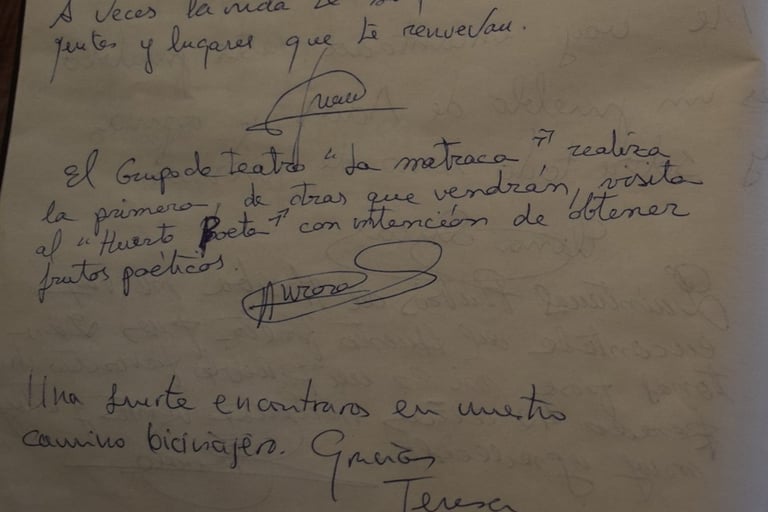 A veces la vida te
gentes y lugares que te renuevan.
El Grupo de teatro "La matraca" realiza
la primera, de otras que vendrán, visita
al "Huerto Poeta" con intención de obtener
frutos poéticos.
Aurora
Una suerte encontraros en nuestro
camino biciviajero. Gracias
Teresa